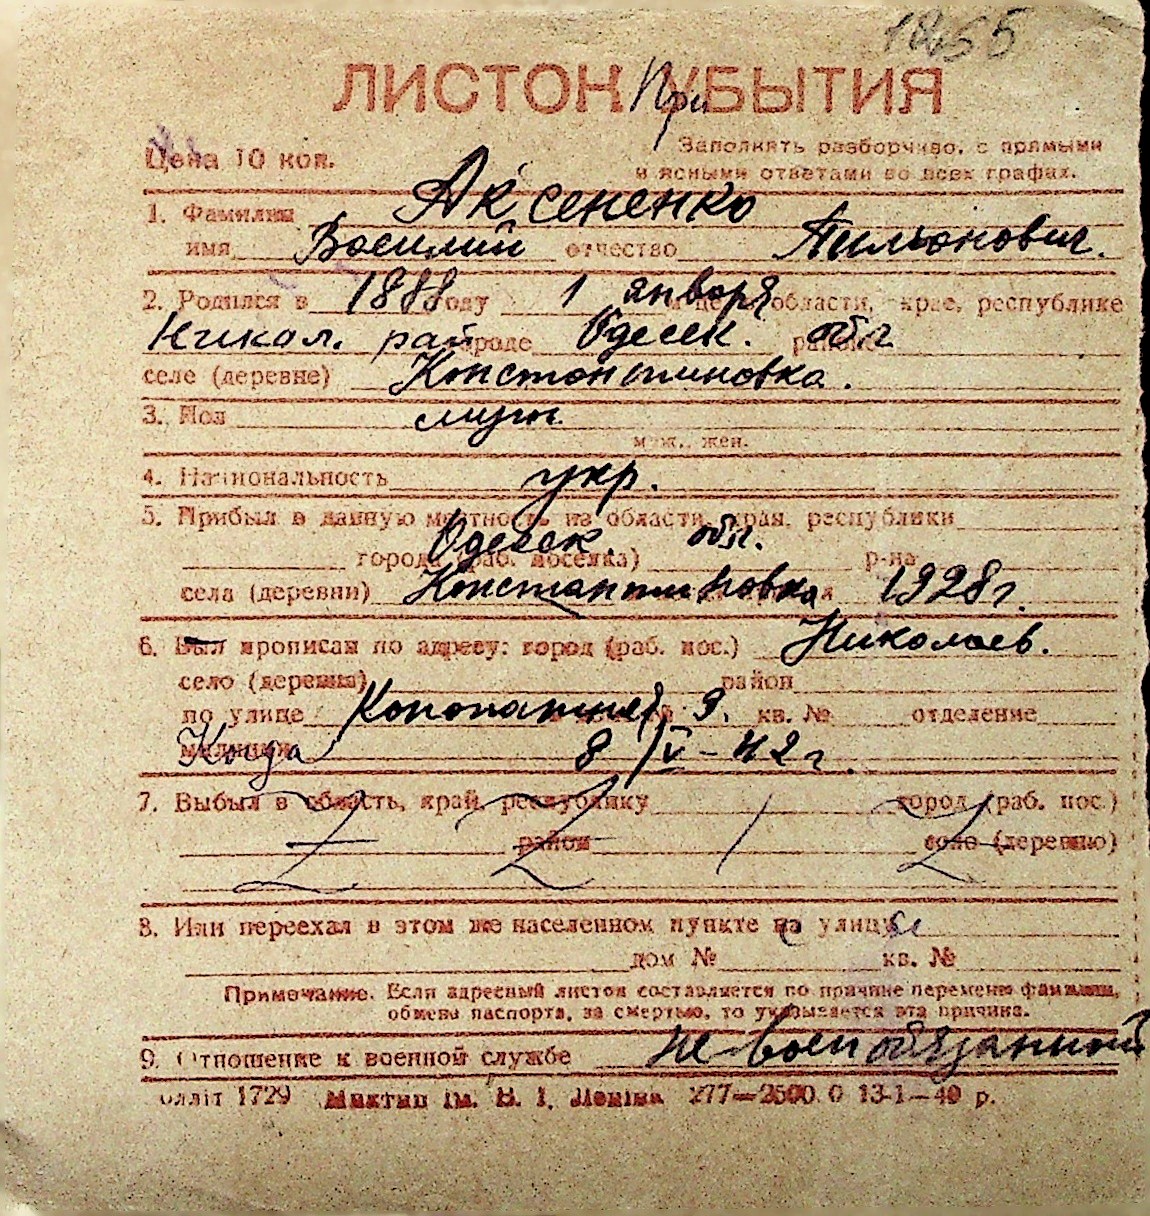 1855
ЛИСТОК При УБЫТИЯ
Цена 10 коп. Заполнять разборчиво, с прямыми
и ясными ответами во всех графах.
1. Фамилия Аксененко
имя Василий отчество
2. Родился в 1888 году 1 января области, крае, республике
Никол. рай городе Одесск. районе обл
селе (деревне) Константиновка.
3. Пол муж.
муж., жен.
4. Национальность укр.
5. Прибыл в данную местность из области, края, республики
Одесск. обл.
города (раб. поселка) р-на
села (деревни) Константиновка 1928 г.
6. Был прописан по адресу: город (раб. пос.) Николаев.
село (деревня) район
по улице 9. кв. № отделение
милиции Когда 8/IV-42 г.
7. Выбыл в область, край, республику город (раб. пос.)
район село (деревню)
8. Или переехал в этом же населенном пункте на улицу
дом № кв. №
Примечание. Если адресный листок составляется по причине перемены фамилии,
обмена паспорта, за смертью, то указывается эта причина.
9. Отношение к военной службе не военнообязанный
1729 ім. В. І. Леніна 277—2500.0 13-1—40 р.